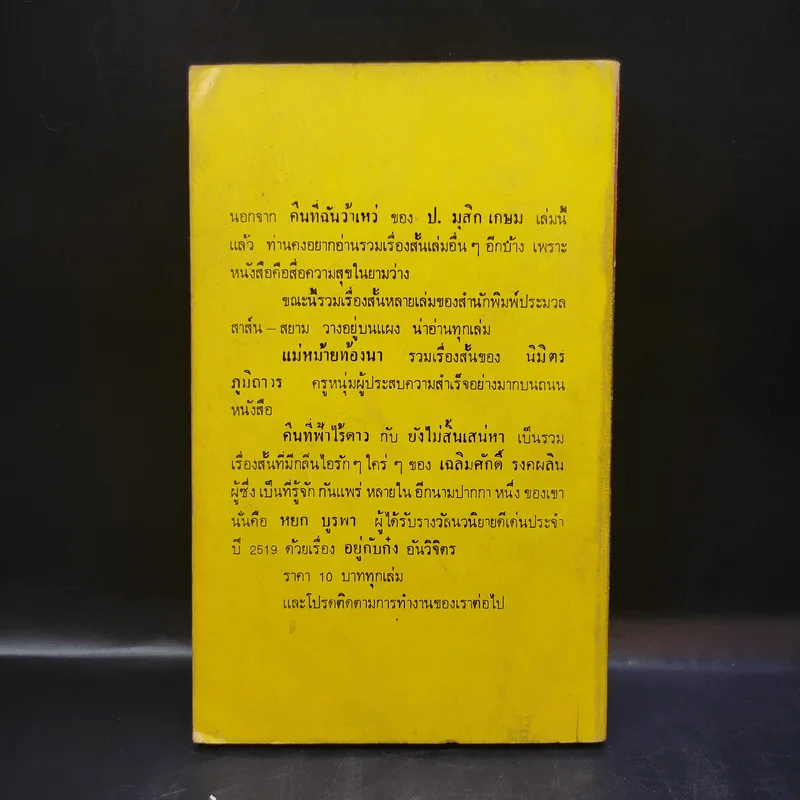 นอกจาก คืนที่ฉันว้าเหว่ ของ ป. มุสิก เกษม เล่มนี้
แล้ว ท่านคงอยากอ่านรวมเรื่องสั้นเล่มอื่น ๆ อีกบ้าง เพราะ
หนังสือคือสื่อความสุขในยามว่าง
ขณะนี้รวมเรื่องสั้นหลายเล่มของสำนักพิมพ์ประมวล
สาส์น – สยาม วางอยู่บนแผง น่าอ่านทุกเล่ม
แม่หม้ายท้องนา รวมเรื่องสั้นของ นิมิตร
ภูมิถาวร ครูหนุ่มผู้ประสบความสำเร็จอย่างมากบนถนน
หนังสือ
คืนที่ฟ้าไร้ดาว กับ ยังไม่สิ้นเสน่หา เป็นรวม
เรื่องสั้นที่มีกลิ่นไอรัก ๆ ใคร่ ๆ ของ เฉลิมศักดิ์ รงคผลิน
ผู้ซึ่ง เป็นที่รู้จัก กันแพร่ หลายใน อีกนามปากกา หนึ่ง ของเขา
นั่นคือ หยก บูรพา ผู้ได้รับรางวัลนวนิยายดีเด่นประจำ
ปี 2519 ด้วยเรื่อง อยู่กับก๋ง อันวิจิตร
ราคา 10 บาททุกเล่ม
และโปรดติดตามการทำงานของเราต่อไป